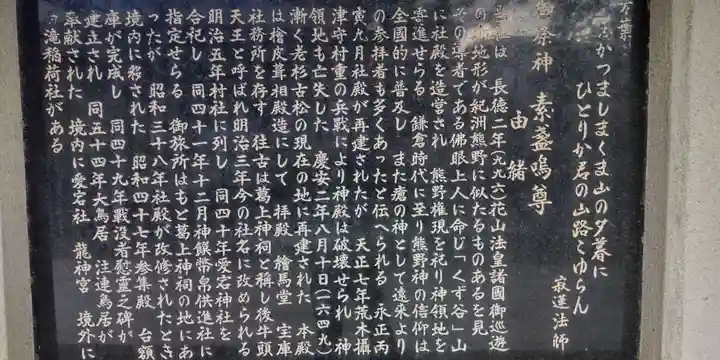 万葉
かつましまくま山の夕暮に
ひとりか君の山路こゆらん
寂蓮法師
御祭神 素盞嗚尊
由緒
当社は 長徳二年(九九六)花山法皇諸國御巡遊
の 地形が紀洲熊野に似たるものあるを見
その導者である佛眼上人に命じ「くず谷」山
に社殿を造営され 熊野権現を祀り神領地を
寄進せらる 鎌倉時代に至り熊野神の信仰は
全國的に普及し また瘡の神として遠来より
の参拝者も多くあったと伝へられる 永正丙
寅九月社殿が再建されたが 天正七年荒木攝
津守村重の兵戦により神殿は破壊せられ 神
領地も亡失した 慶安二年八月十日(一六四九)
漸く老杉古松の現在の地に再建された 本殿
は檜皮葺相殿造にして 拝殿 繪馬堂 宝庫
社務所を存す 往古は葛上神祠と稱し後牛頭
天王と呼ばれ明治三年今の社名に改められる
明治五年村社に列し 同四十年愛宕神社を
合祀し 同四十一年十二月神饌幣帛供進社に
指定せらる 御旅所はもと葛上神祠の地にあ
ったが 昭和三十八年社殿が改修されたとき
境内に移された 昭和四十七年参集殿 台額
庫が完成し 同四十九年戦没者慰霊之碑が
建立され 同五十四年大鳥居 注連鳥居が
奉献された 境内に愛宕社 龍神宮 境外に
滝稲荷社がある